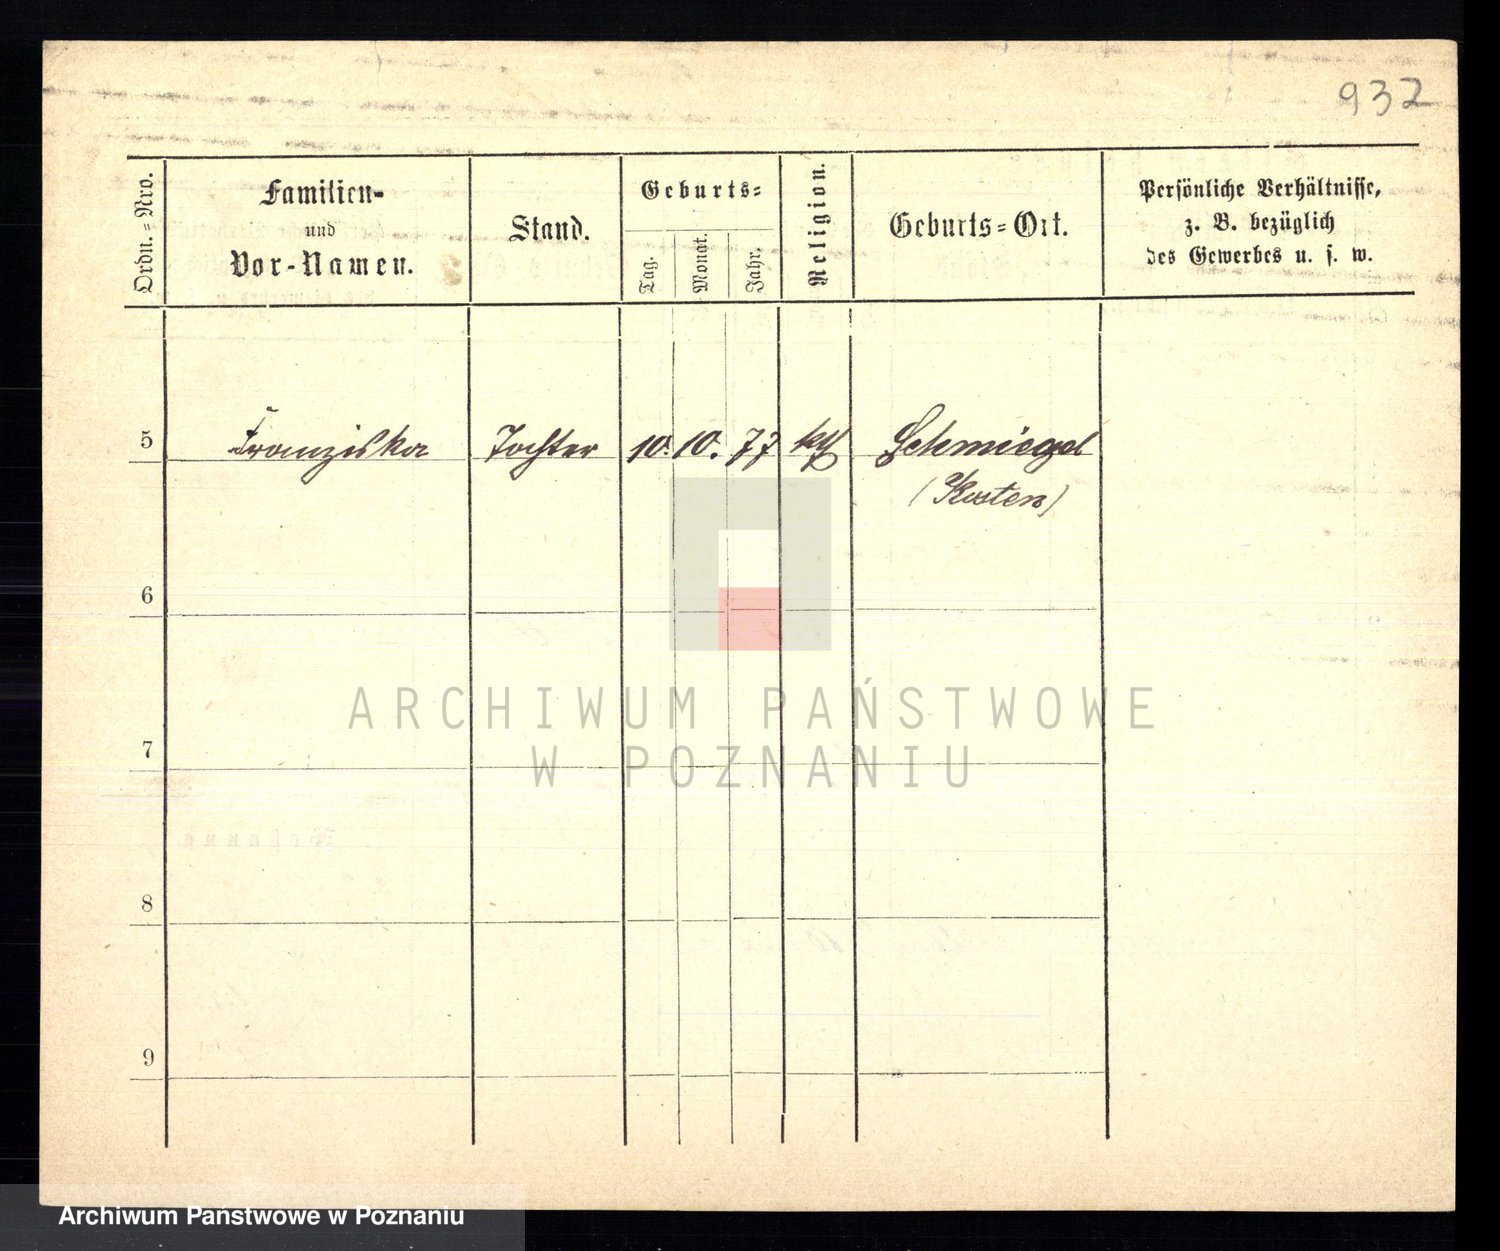 932
Ordn.=Nro.
Familien-
und
Vor-Namen.
Stand.
Geburts=
Tag.
Monat.
Jahr.
Religion.
Geburts=Ort.
Persönliche Verhältnisse,
z. B. bezüglich
des Gewerbes u. s. w.
5 Franziska Tochter 10. 10. 77 kth Schmiegel
(Kosten)
6
7
8
9
ARCHIWUM PAŃSTWOWE
W POZNANIU
Archiwum Państwowe w Poznaniu